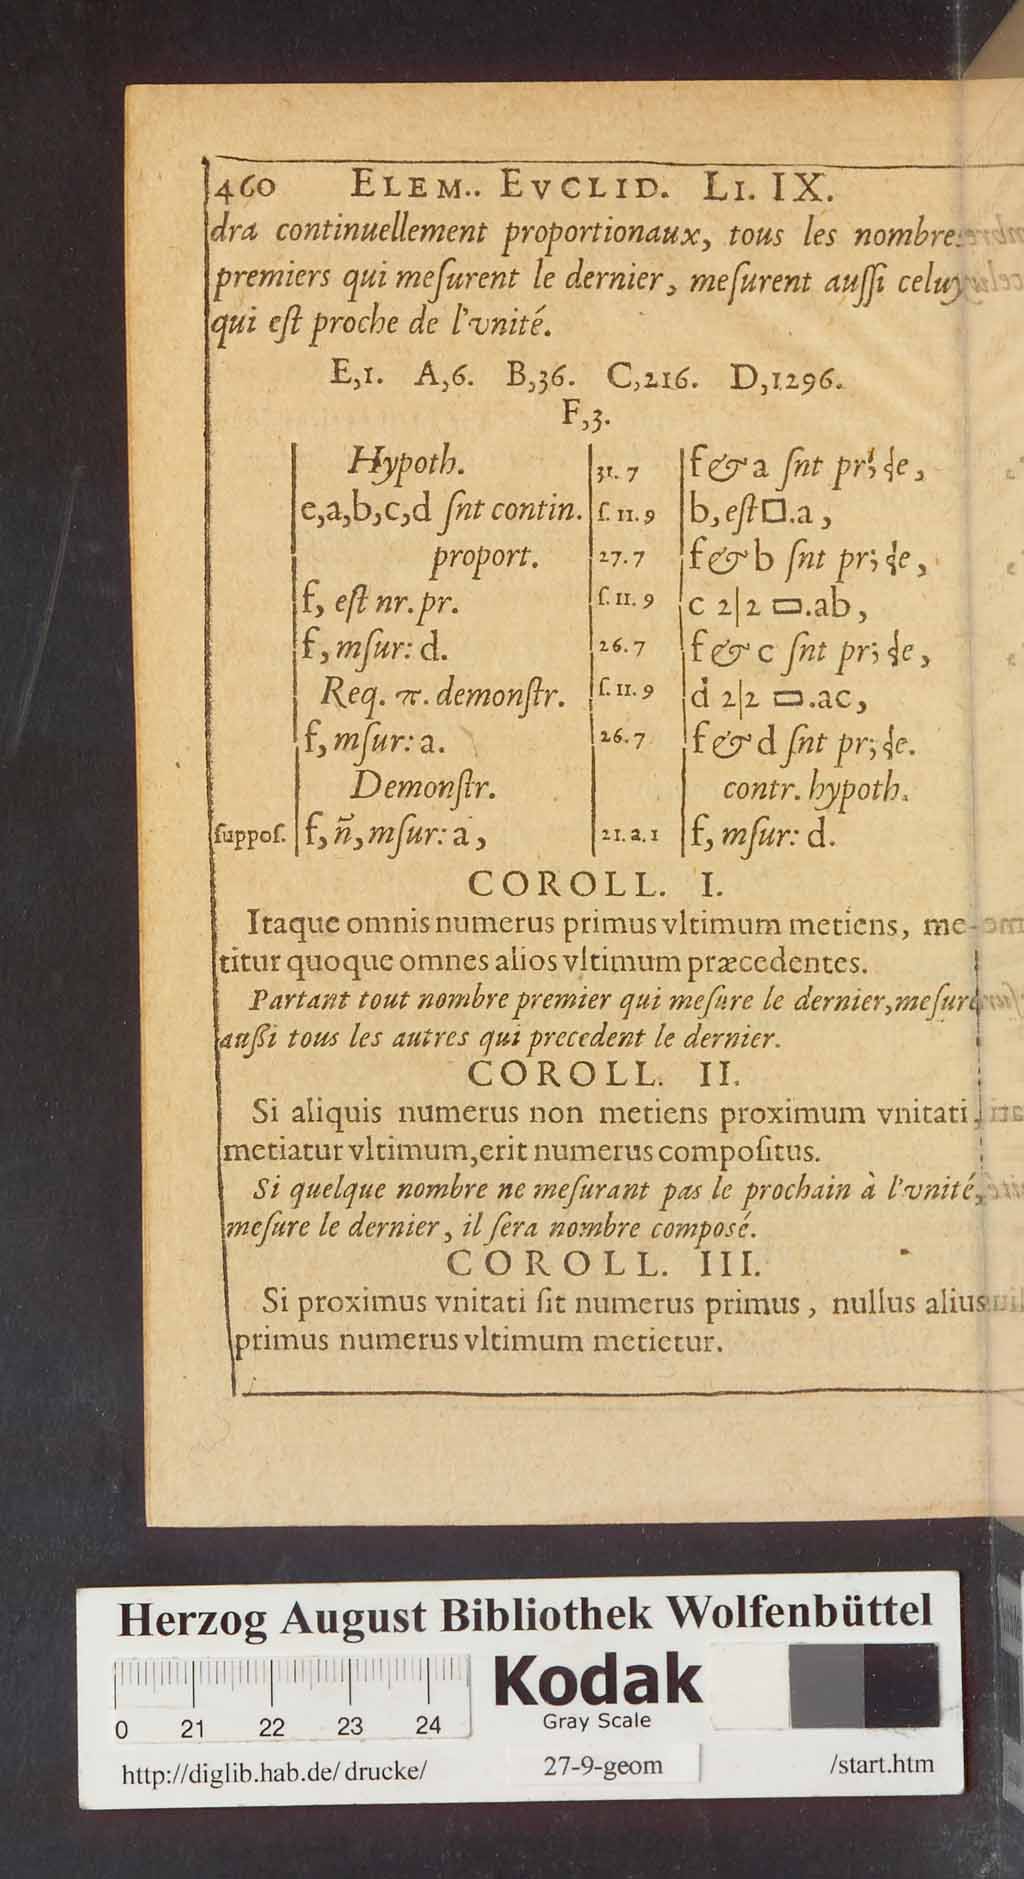 460 ELEM.. EVCLID. LI. IX.
dra continuellement proportionaux, tous les nombres
premiers qui meſurent le dernier, meſurent auſſi celuy
qui eſt proche de l'vnité.
E,1. A,6. B,36. C,216. D,1296.
F,3.
Hypoth.
e,a,b,c,d ſnt contin.
proport.
f, eſt nr. pr.
f, mſur: d.
Req. π. demonſtr.
f, mſur: a.
Demonſtr.
ſuppoſ. f, ñ, mſur: a,
31. 7 f & a ſnt pr; ɖe,
ſ. 11. 9 b, eſt □.a,
27. 7 f & b ſnt pr; ɖe,
ſ. 11. 9 c 2|2 ▭.ab,
26. 7 f & c ſnt pr; ɖe,
ſ. 11. 9 d 2|2 ▭.ac,
26. 7 f & d ſnt pr; ɖe.
contr. hypoth.
21. a. 1 f, mſur: d.
COROLL. I.
Itaque omnis numerus primus vltimum metiens, me-
titur quoque omnes alios vltimum præcedentes.
Partant tout nombre premier qui meſure le dernier, meſure
auſſi tous les autres qui precedent le dernier.
COROLL. II.
Si aliquis numerus non metiens proximum vnitati,
metiatur vltimum, erit numerus compoſitus.
Si quelque nombre ne meſurant pas le prochain à l'vnité,
meſure le dernier, il ſera nombre composé.
COROLL. III.
Si proximus vnitati ſit numerus primus, nullus alius
primus numerus vltimum metietur.
Herzog August Bibliothek Wolfenbüttel
0 21 22 23 24
Kodak
Gray Scale
http://diglib.hab.de/ drucke/ 27-9-geom /start.htm